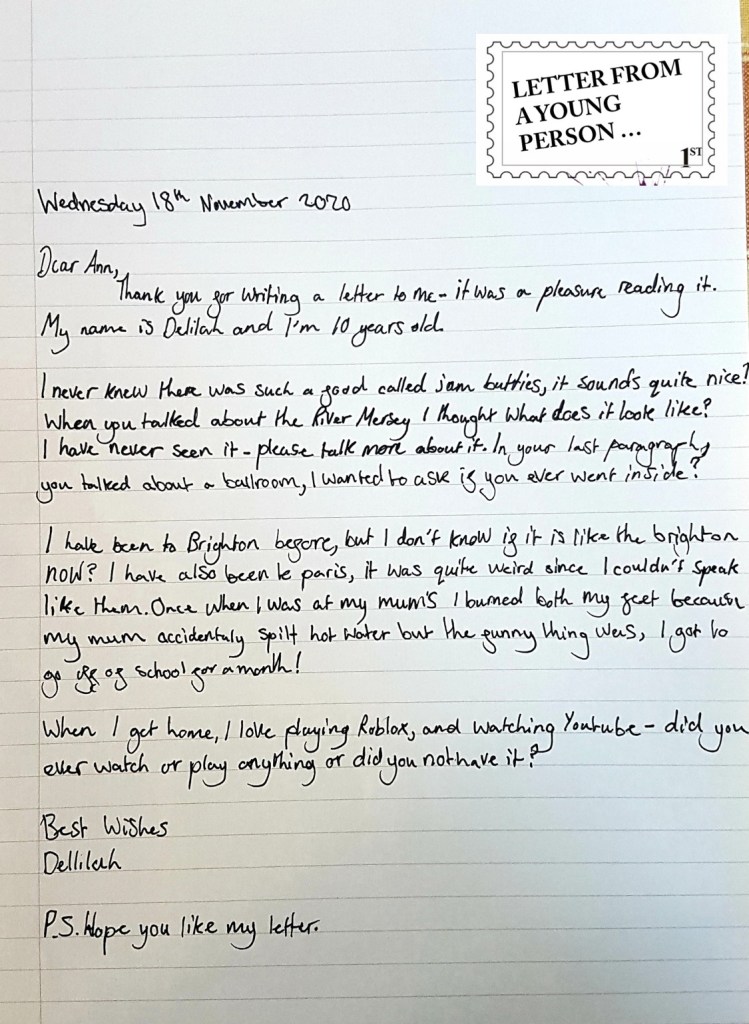 LETTER FROM
A YOUNG
PERSON ...
1ST
Wednesday 18th November 2020
Dear Ann,
Thank you for writing a letter to me - it was a pleasure reading it.
My name is Delilah and I'm 10 years old.
I never knew there was such a food called jam butties, it sounds quite nice!
When you talked about the River Mersey I thought what does it look like?
I have never seen it - please talk more about it. In your last paragraph,
you talked about a ballroom, I wanted to ask if you ever went inside?
I have been to Brighton before, but I don't know if it is like the brighton
now? I have also been to paris, it was quite weird since I couldn't speak
like them. Once when I was at my mum's I burned both my feet because
my mum accidentaly spilt hot water but the funny thing was, I got to
go off of school for a month!
When I get home, I love playing Roblox, and watching Youtube - did you
ever watch or play anything or did you not have it?
Best Wishes
Dellilah
P.S. Hope you like my letter.